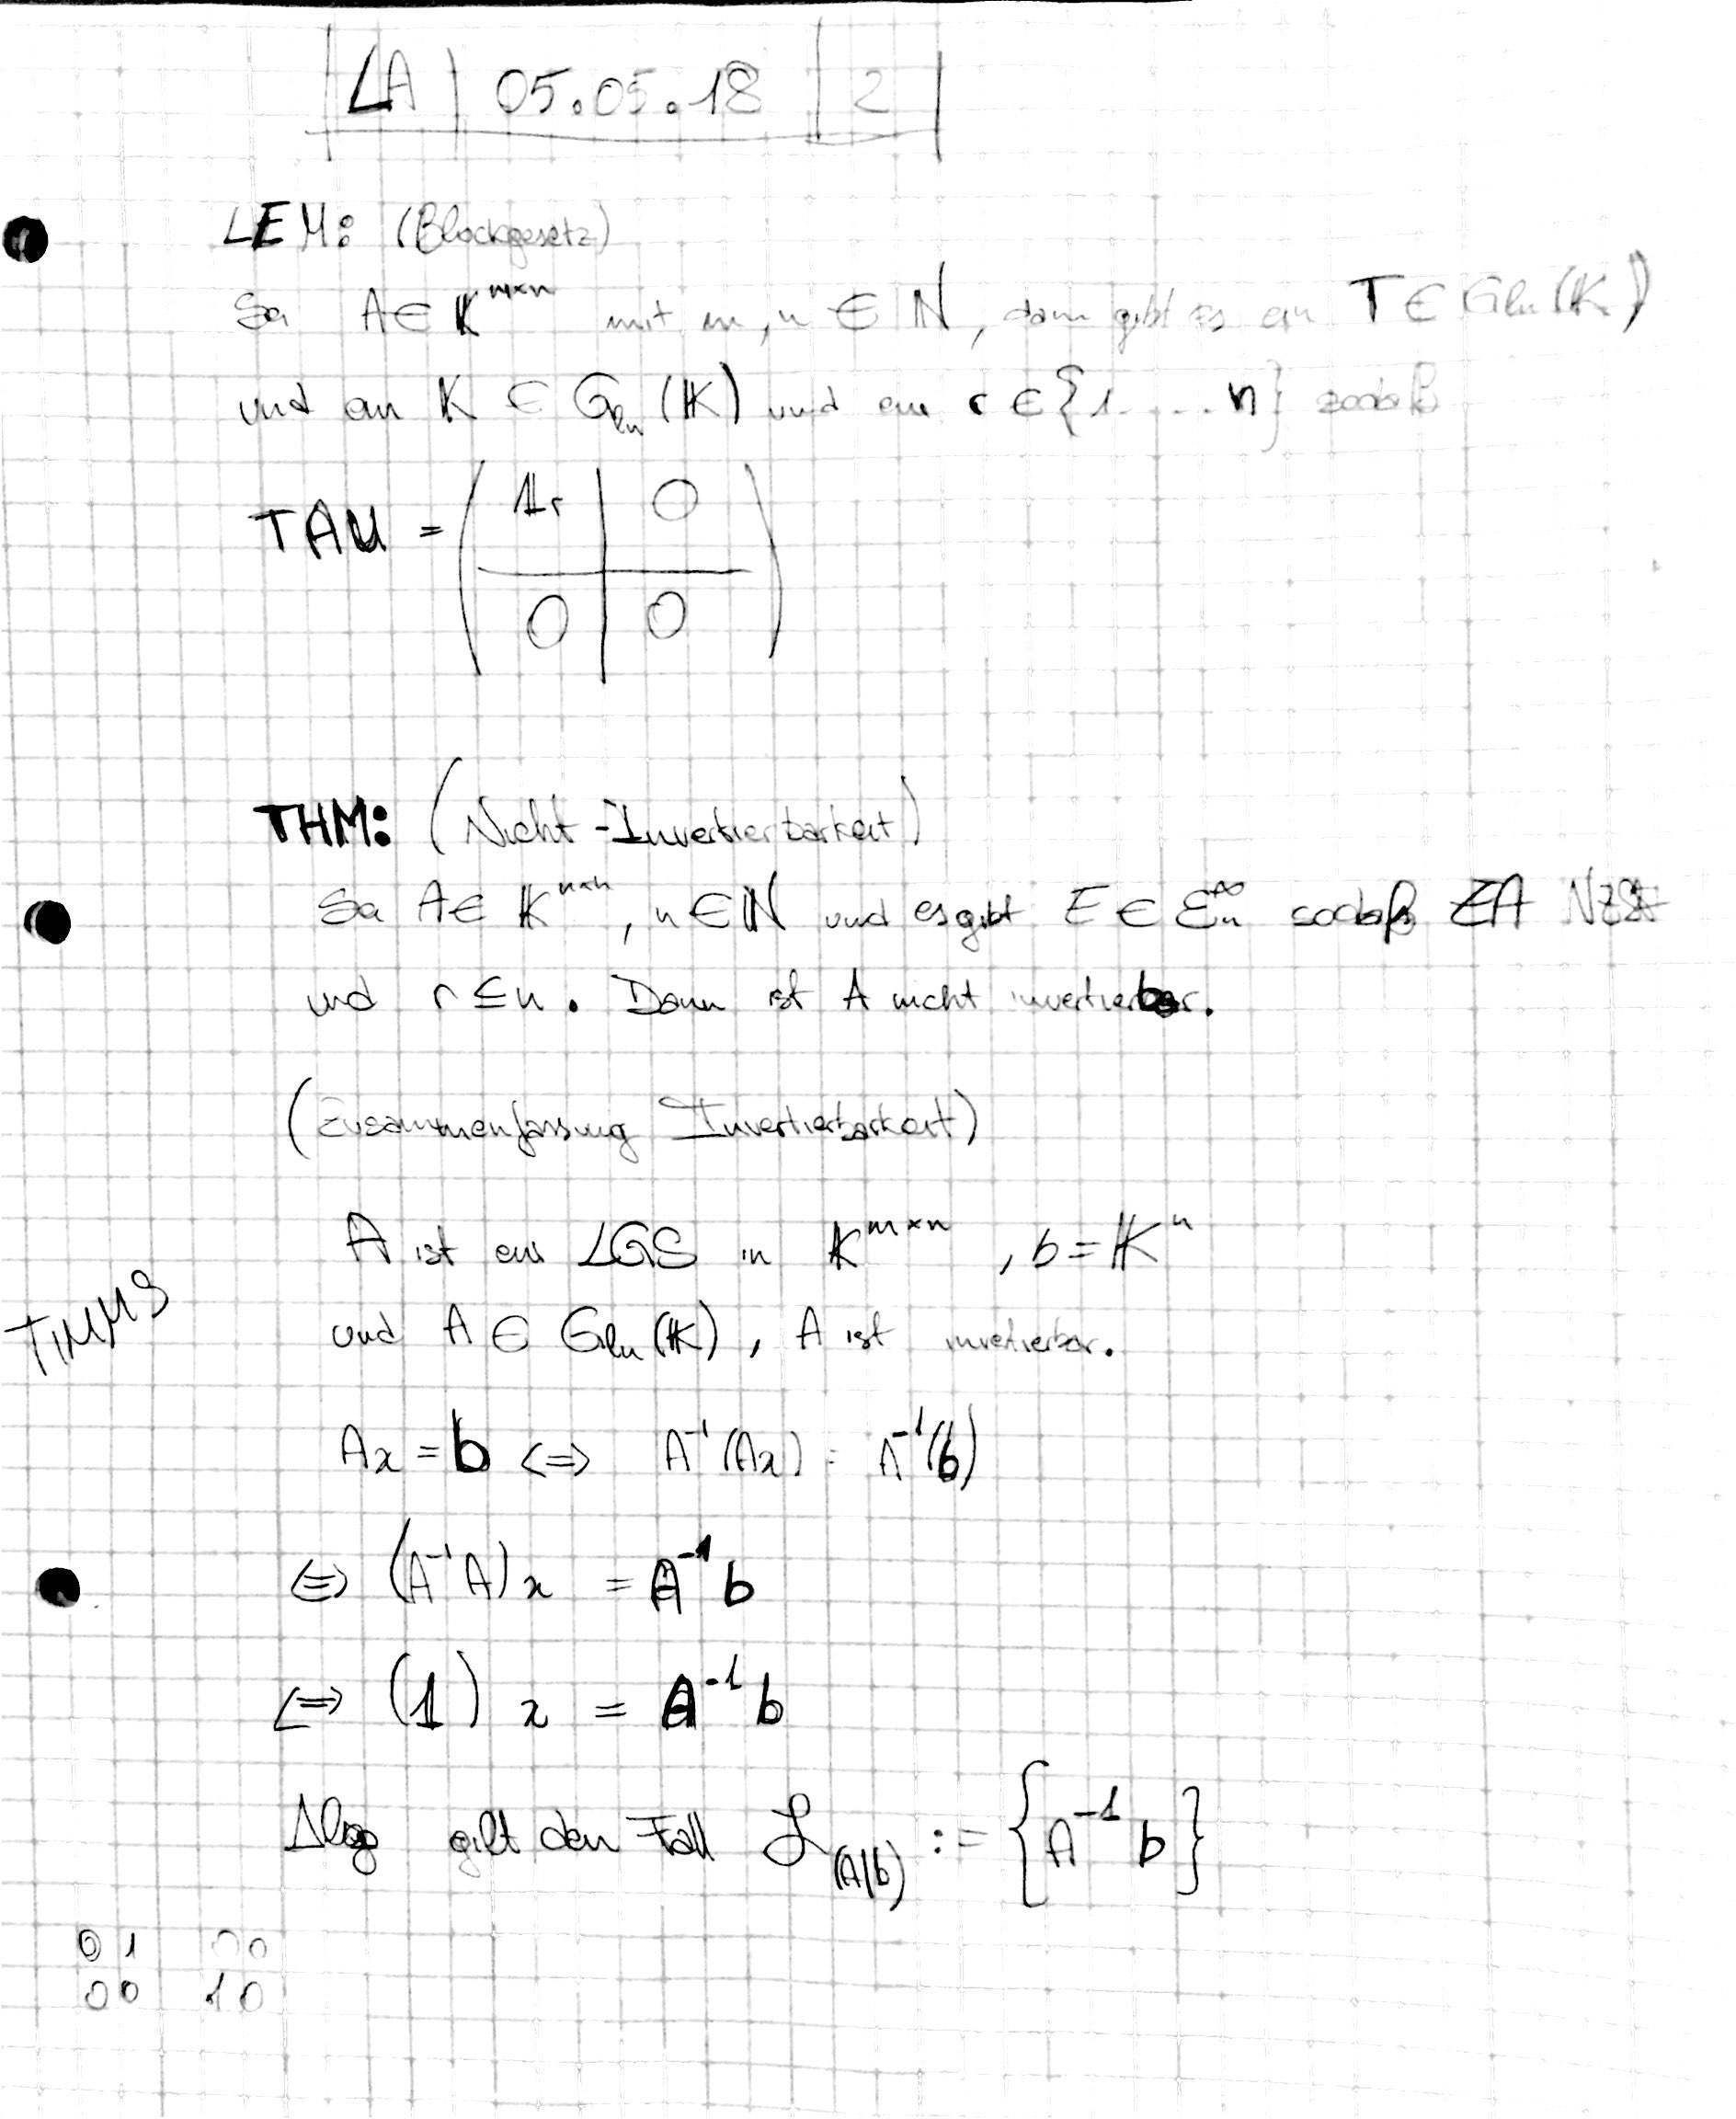 LA | 05.05.18 | 2
LEM: (Blockgesetz)
Sei A ∈ K^{m×n} mit m, n ∈ N, dann gibt es ein T ∈ Gln(K)
und ein K ∈ Gln (K) und ein r ∈ {1....n} sodaß
TAU = ( 1r | 0
0 | 0 )
THM: (Nicht-Invertierbarkeit)
Sei A ∈ K^{n×n}, n ∈ N und es gibt E ∈ Ɛ_n^∞ sodaß EA NZSF
und r ≤ n. Dann ist A nicht invertierbar.
(Zusammenfassung Invertierbarkeit)
A ist ein LGS in K^{m×n}, b = K^n
TIMMS
und A ∈ Gln (K), A ist invertierbar.
Ax = b <=> A^{-1}(Ax) = A^{-1}(b)
<=> (A^{-1}A)x = A^{-1}b
<=> (1) x = A^{-1}b
Also gilt den Fall L_{(A|b)} := {A^{-1}b}
0 1 0 0
0 0 1 0